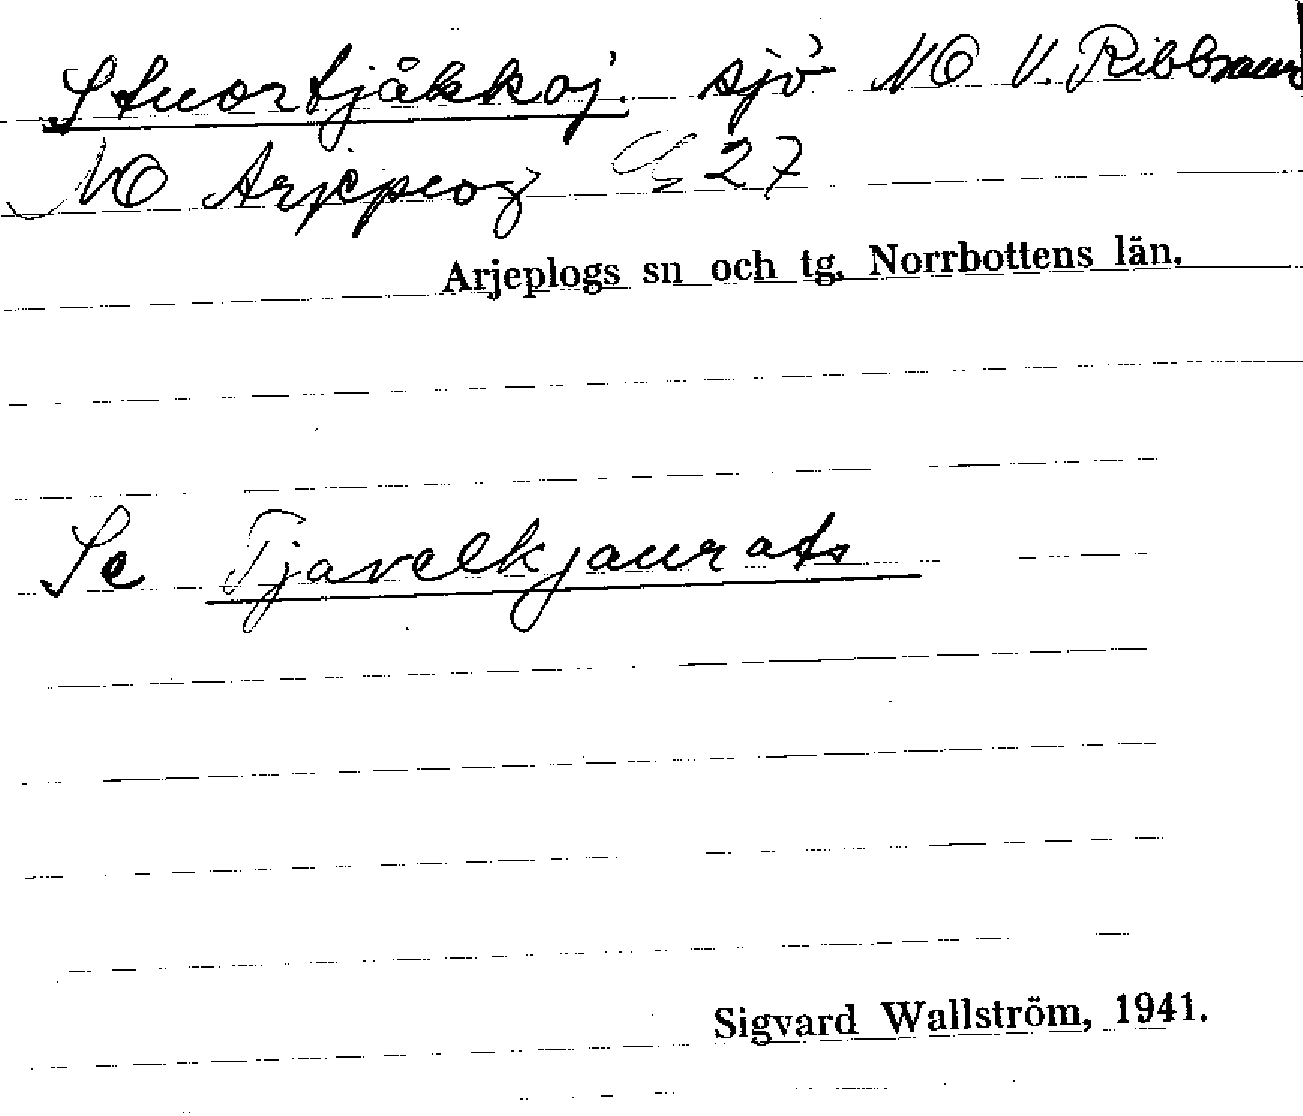 Stuortjåkkoj. sjö NO V. Ribbraur
NO Arjeplog 27
Arjeplogs sn och tg. Norrbottens län.
Se Tjavelkjaurats
Sigvard Wallström, 1941.